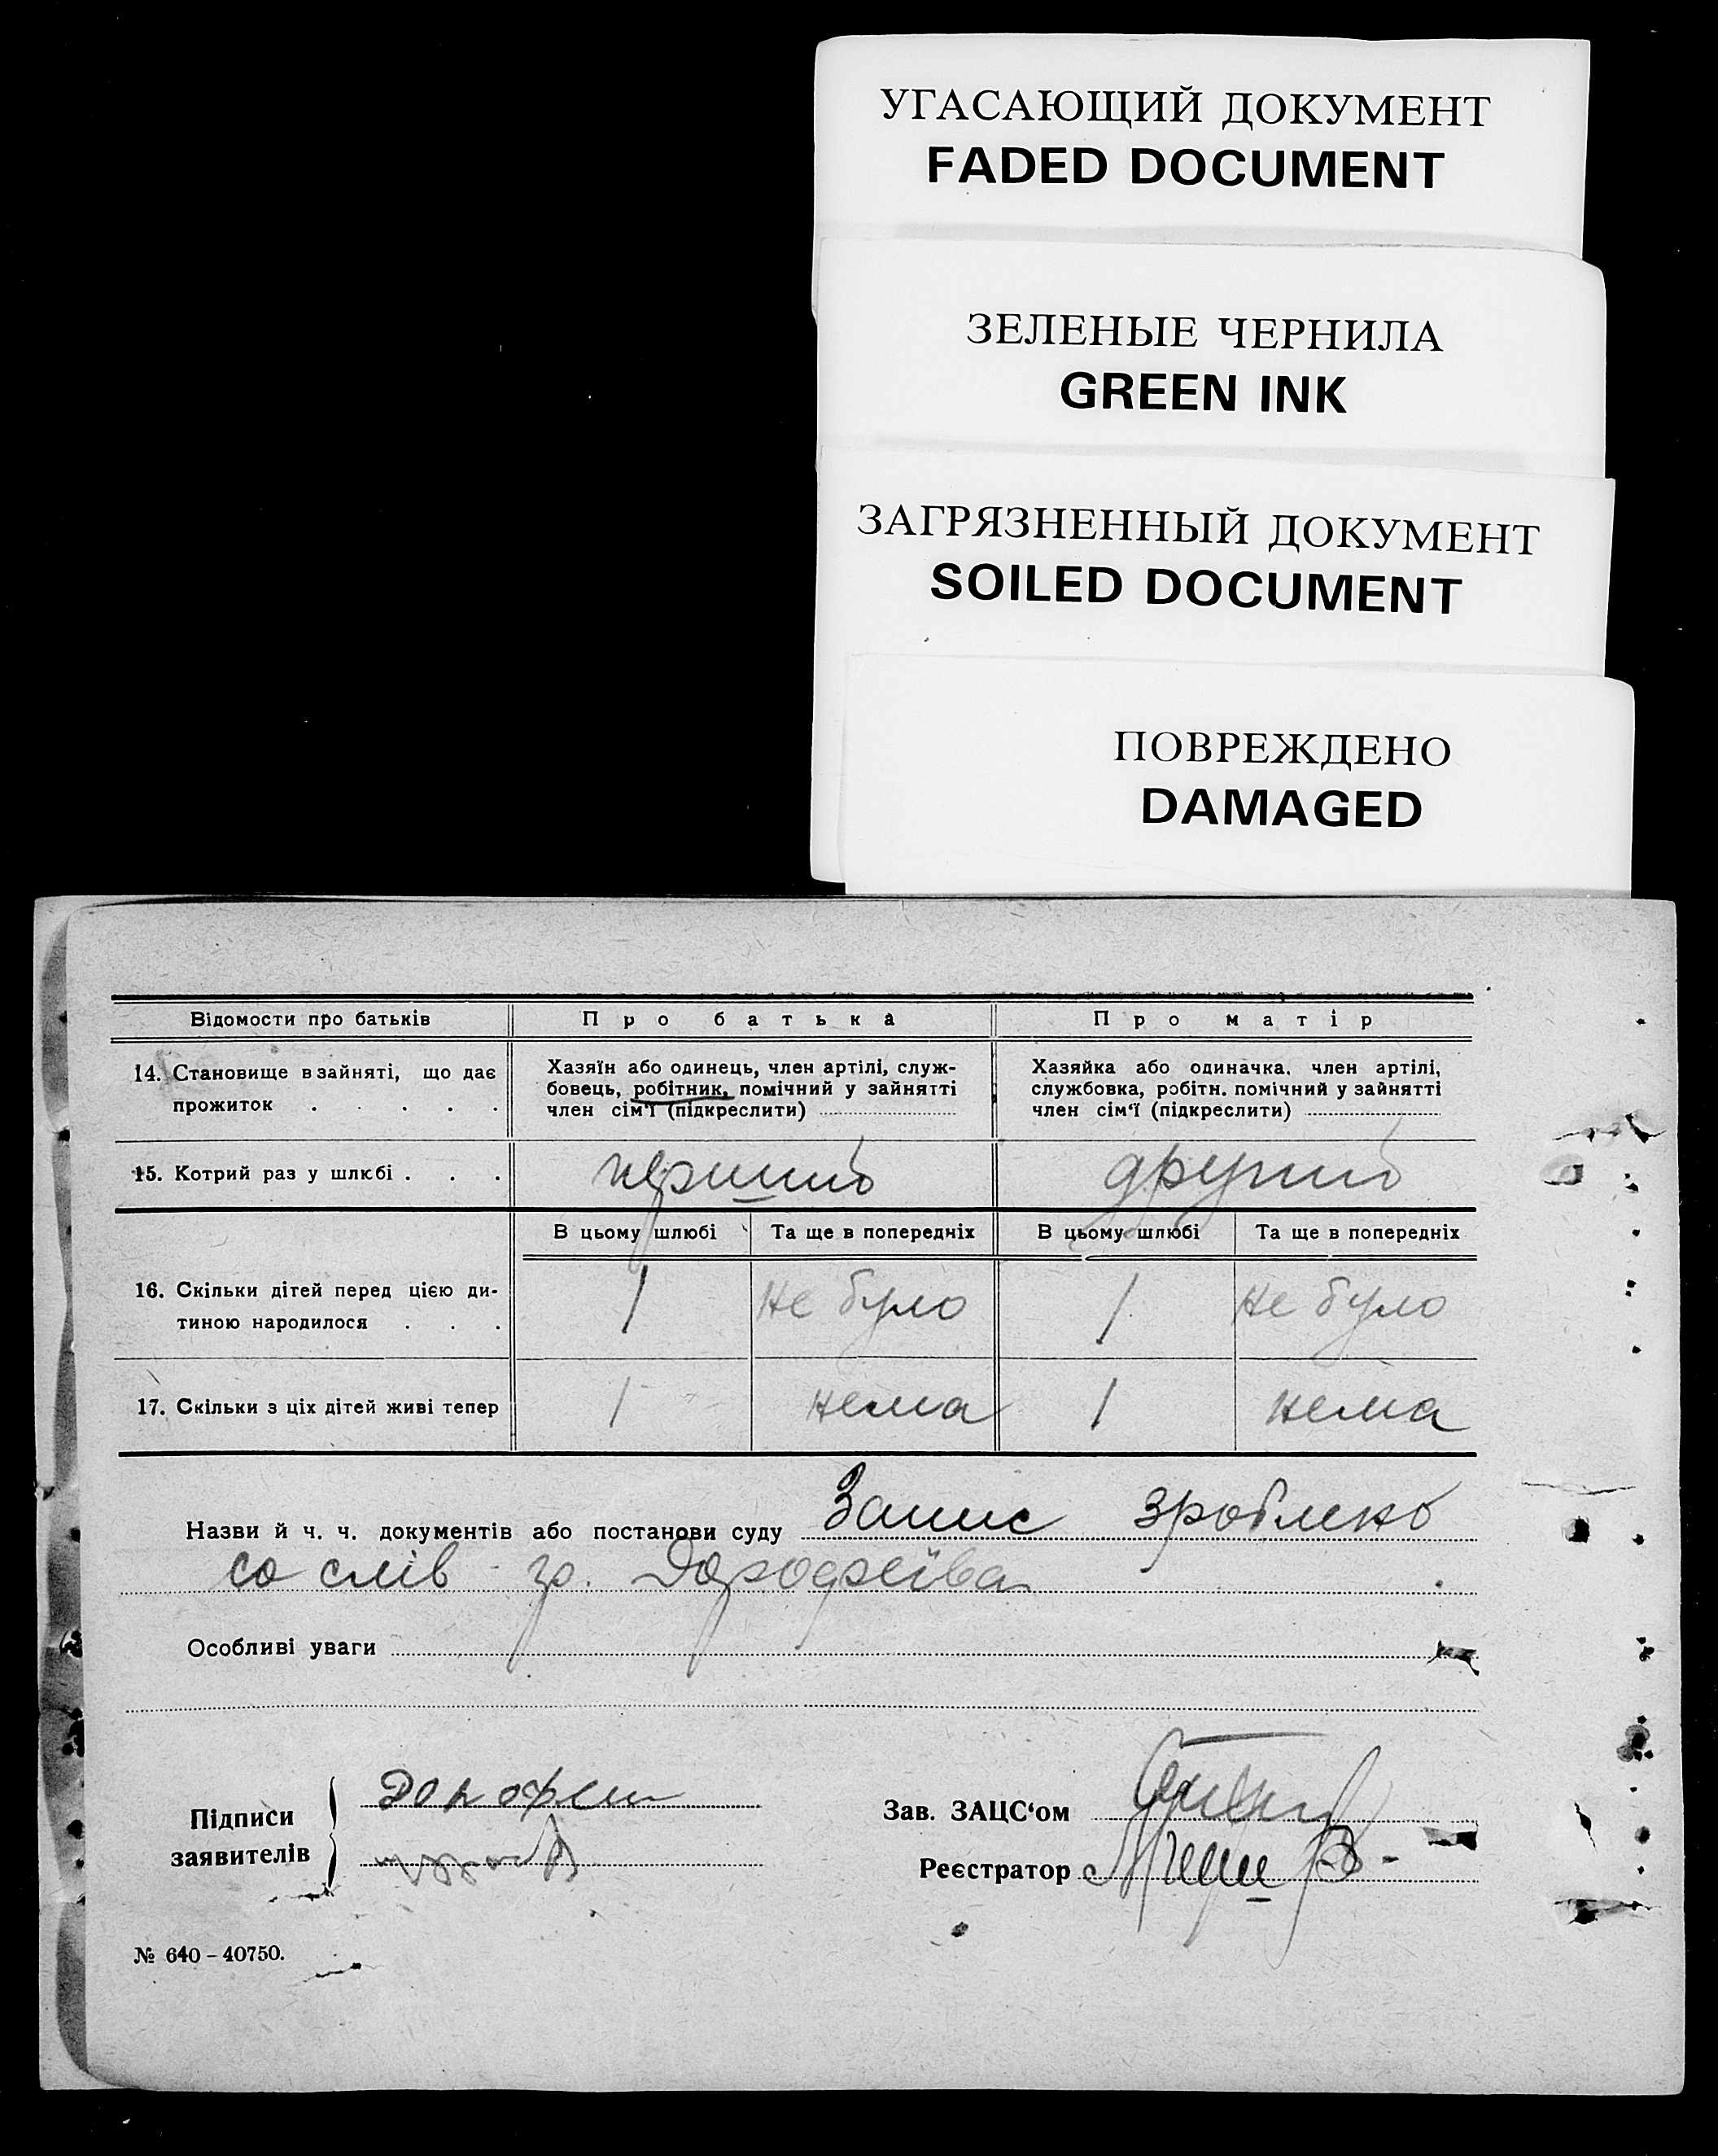 УГАСАЮЩИЙ ДОКУМЕНТ
FADED DOCUMENT
ЗЕЛЕНЫЕ ЧЕРНИЛА
GREEN INK
ЗАГРЯЗНЕННЫЙ ДОКУМЕНТ
SOILED DOCUMENT
ПОВРЕЖДЕНО
DAMAGED
Відомости про батьків
Про батька
Про матір
14. Становище в зайняті, що дає
прожиток . . . . .
Хазяїн або одинець, член артілі, служ-
бовець, робітник, помічний у зайнятті
член сім'ї (підкреслити)
Хазяйка або одиначка, член артілі,
службовка, робітн. помічний у зайнятті
член сім'ї (підкреслити)
15. Котрий раз у шлюбі . . .
перший
другий
В цьому шлюбі
Та ще в попередніх
В цьому шлюбі
Та ще в попередніх
16. Скільки дітей перед цією ди-
тиною народилося . . .
1
не було
1
не було
17. Скільки з ціх дітей живі тепер
1
нема
1
нема
Назви й ч. ч. документів або постанови суду Запис зроблено
со слів гр. Дорофеїва
Особливі уваги
Підписи
заявителів
Дорофеи
Зав. ЗАЦС'ом
Реєстратор
№ 640 – 40750.